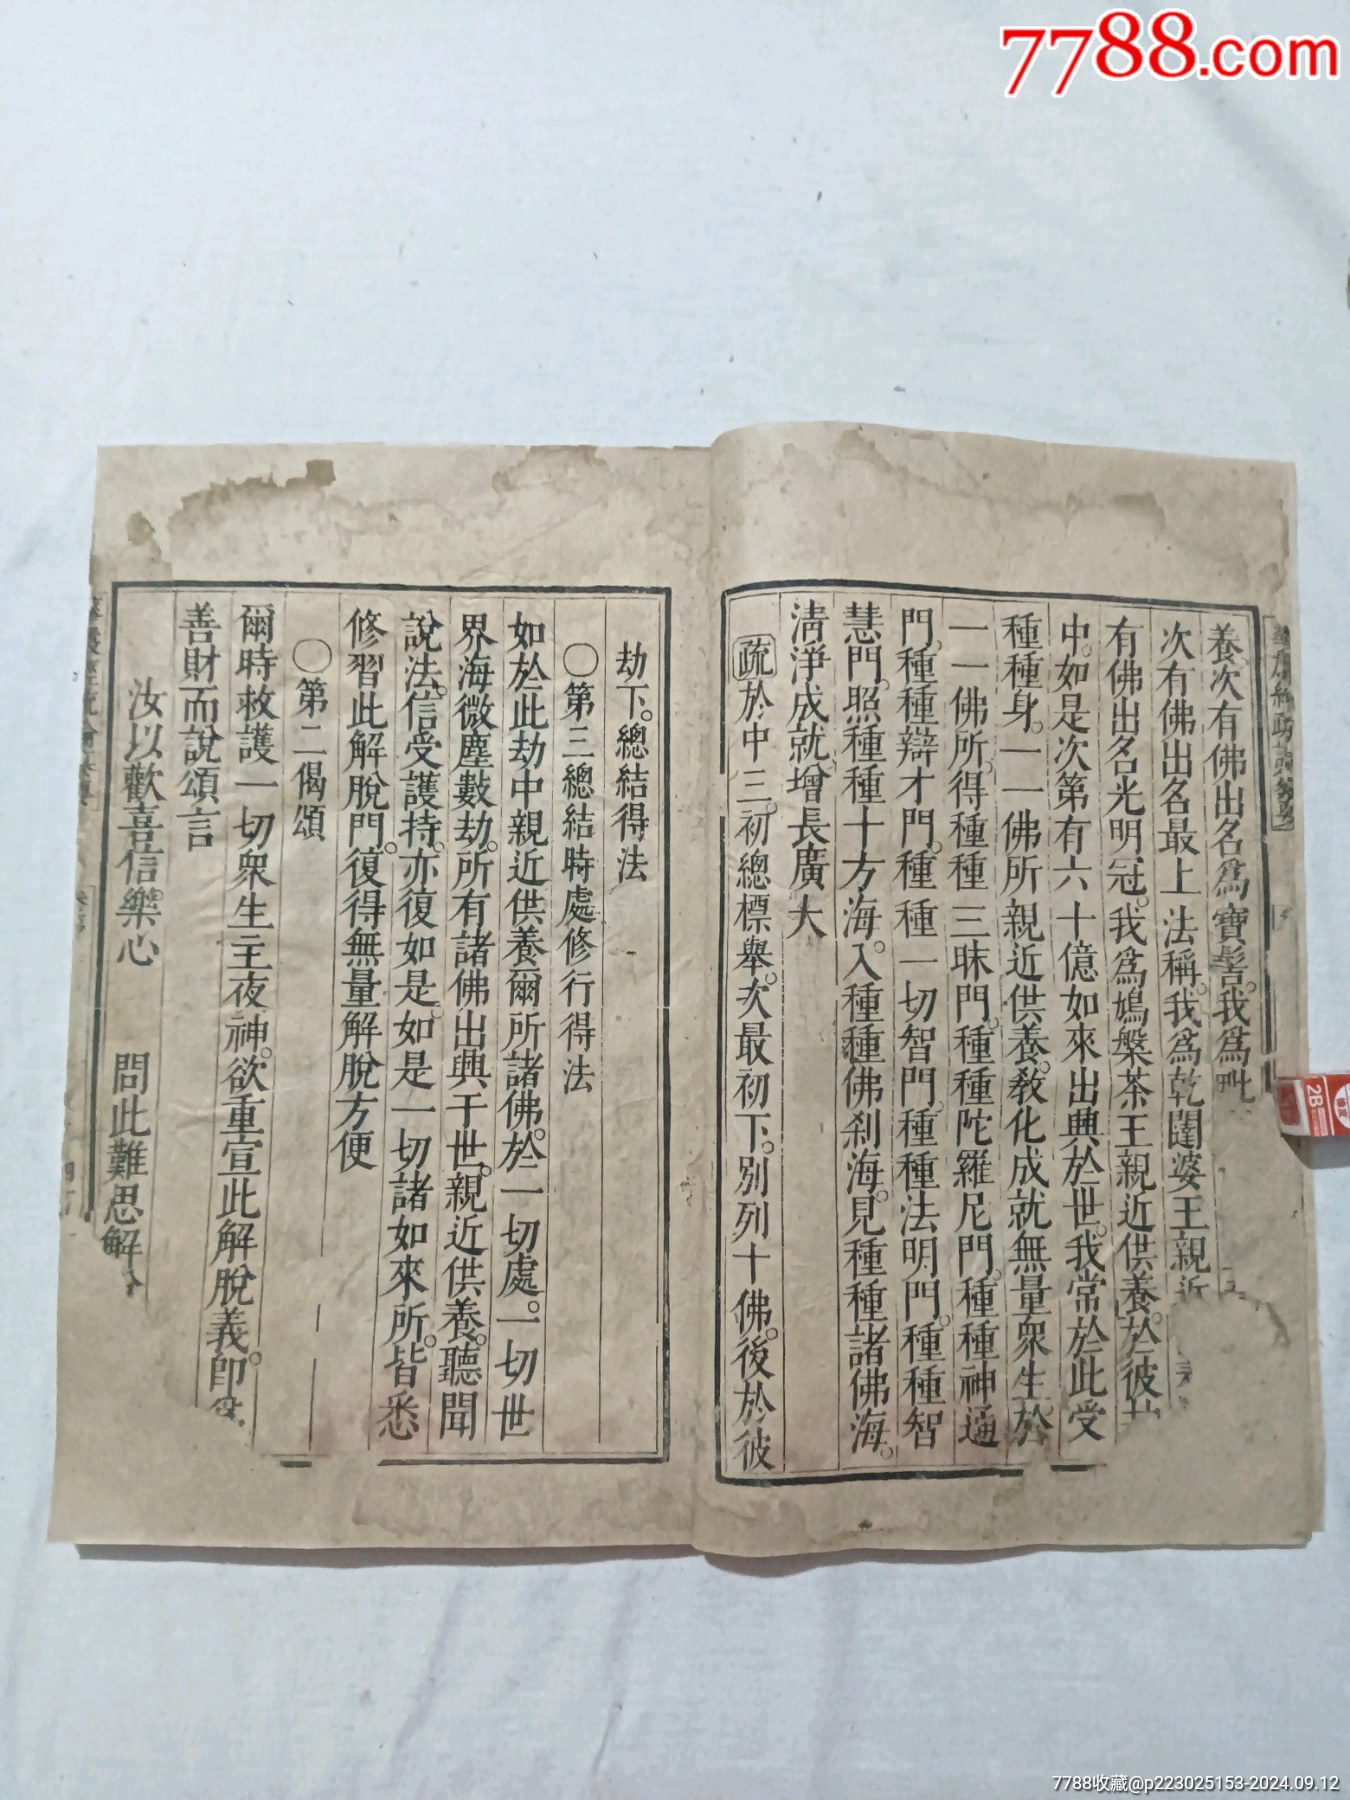 7788.com
養。次有佛出名爲寶髻。我爲毗
次有佛出名最上法稱。我爲乾闥婆王親近
有佛出名光明冠。我爲鳩槃茶王親近供養。於彼
中。如是次第有六十億如來出興於世。我常於此受
種種身。一一佛所親近供養。教化成就無量衆生。於
一一佛所。得種種三昧門。種種陀羅尼門。種種神通
門。種種辯才門。種種一切智門。種種法明門。種種智
慧門。照種種十方海。入種種佛刹海。見種種諸佛海。
淸淨成就增長廣大
疏於中三。初總標舉。次最初下。別列十佛。後於彼
劫下。總結得法
〇第三總結時處修行得法
如於此劫中親近供養爾所諸佛。於一切處。一切世
界海微塵數劫。所有諸佛出興于世。親近供養。聽聞
說法。信受護持。亦復如是。如是一切諸如來所。皆悉
修習此解脫門。復得無量解脫方便
〇第二偈頌
爾時救護一切衆生主夜神。欲重宣此解脫義。卽爲
善財而說頌言
汝以歡喜信樂心 問此難思解
2B
7788收藏@p223025153-2024.09.12